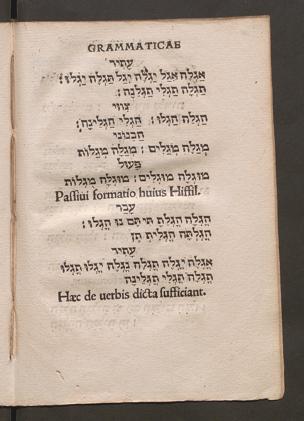 GRAMMATICAE
עתיד
אגלה אגל יגלה יגל תגלה יגלו:
תגלה תגלי תגלנה:
צווי
הגלה הגלו: הגלי הגלינה:
הבנוני
מגלה מגלים: מגלה מגלות
פעול
מוגלה מוגלים: מוגלה מגלות
Passiui formatio huius Hiffil.
עבר
הגלה הגלת תי תם נו הגלו:
הגלתה הגלית תן
עתיד
אגלה יגלה תגלה נגלה יגלו תגלו
תגלה תגלי תגלינה
Hæc de uerbis dicta sufficiant.